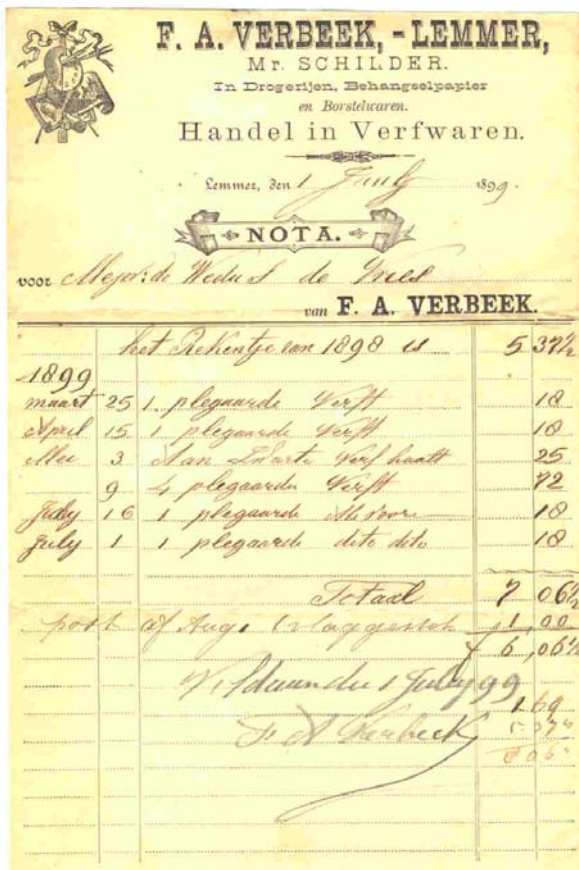 F. A. VERBEEK, - LEMMER,
Mr. SCHILDER.
In Drogerijen, Behangselpapier
en Borstelwaren.
Handel in Verfwaren.
Lemmer, den 1 July 1899.
NOTA.
voor Mejer: de Wed de Vries
van F. A. VERBEEK.
het Rekentje van 1898 is 5 37½
1899
maart 25 1 plegaarde Verft 18
April 15 1 plegaarde Verft 18
Mei 3 Aan Zwarte Verf haalt 25
9 4 plegaarde Verft 72
16 1 plegaarde 18
July 1 1 plegaarde dito dito 18
Totaal 7 06½
post af Aug. vlaggestok 1,00
f 6,06½
Voldaan du 1 July 99
F A Verbeek
1 69